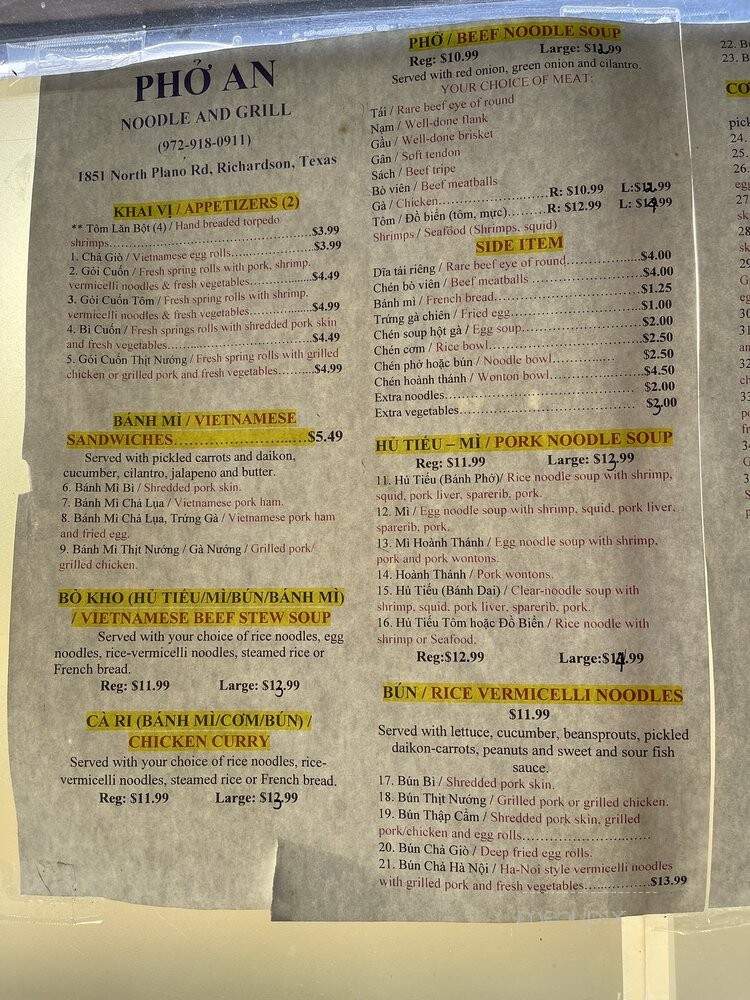 PHỞ AN
NOODLE AND GRILL
(972-918-0911)
1851 North Plano Rd, Richardson, Texas
KHAI VỊ / APPETIZERS (2)
** Tôm Lăn Bột (4) / Hand breaded torpedo
shrimps...............................................$3.99
1. Chả Giò / Vietnamese egg rolls....................$3.99
2. Gỏi Cuốn / Fresh spring rolls with pork, shrimp,
vermicelli noodles & fresh vegetables...............$4.49
3. Gỏi Cuốn Tôm / Fresh spring rolls with shrimp,
vermicelli noodles & fresh vegetables...............$4.99
4. Bì Cuốn / Fresh springs rolls with shredded pork skin
and fresh vegetables................................$4.49
5. Gỏi Cuốn Thịt Nướng / Fresh spring rolls with grilled
chicken or grilled pork and fresh vegetables.........$4.99
BÁNH MÌ / VIETNAMESE
SANDWICHES..............................$5.49
Served with pickled carrots and daikon,
cucumber, cilantro, jalapeno and butter.
6. Bánh Mì Bì / Shredded pork skin.
7. Bánh Mì Chả Lụa / Vietnamese pork ham.
8. Bánh Mì Chả Lụa, Trứng Gà / Vietnamese pork ham
and fried egg.
9. Bánh Mì Thịt Nướng / Gà Nướng / Grilled pork/
grilled chicken.
BÒ KHO (HỦ TIẾU/MÌ/BÚN/BÁNH MÌ)
/ VIETNAMESE BEEF STEW SOUP
Served with your choice of rice noodles, egg
noodles, rice-vermicelli noodles, steamed rice or
French bread.
Reg: $11.99 Large: $13.99
CÀ RI (BÁNH MÌ/CƠM/BÚN) /
CHICKEN CURRY
Served with your choice of rice noodles, rice-
vermicelli noodles, steamed rice or French bread.
Reg: $11.99 Large: $13.99
PHỞ / BEEF NOODLE SOUP
Reg: $10.99 Large: $12.99
Served with red onion, green onion and cilantro.
YOUR CHOICE OF MEAT:
Tái / Rare beef eye of round
Nạm / Well-done flank
Gầu / Well-done brisket
Gân / Soft tendon
Sách / Beef tripe
Bò viên / Beef meatballs
Gà / Chicken.........................R: $10.99 L:$12.99
Tôm / Đồ biển (tôm, mực).......R: $12.99 L: $14.99
Shrimps / Seafood (Shrimps, squid)
SIDE ITEM
Dĩa tái riêng / Rare beef eye of round..................$4.00
Chén bò viên / Beef meatballs .........................$4.00
Bánh mì / French bread...............................$1.25
Trứng gà chiên / Fried egg............................$1.00
Chén soup hột gà / Egg soup..........................$2.00
Chén cơm / Rice bowl................................$2.50
Chén phở hoặc bún / Noodle bowl.................. $2.50
Chén hoành thánh / Wonton bowl.....................$4.50
Extra noodles......................................... $2.00
Extra vegetables...................................... $3.00
HỦ TIẾU – MÌ / PORK NOODLE SOUP
Reg: $11.99 Large: $13.99
11. Hủ Tiếu (Bánh Phở)/ Rice noodle soup with shrimp,
squid, pork liver, sparerib, pork.
12. Mì / Egg noodle soup with shrimp, squid, pork liver,
sparerib, pork.
13. Mì Hoành Thánh / Egg noodle soup with shrimp,
pork and pork wontons.
14. Hoành Thánh / Pork wontons.
15. Hủ Tiếu (Bánh Dai) / Clear-noodle soup with
shrimp, squid, pork liver, sparerib, pork.
16. Hủ Tiếu Tôm hoặc Đồ Biển / Rice noodle with
shrimp or Seafood.
Reg:$12.99 Large:$14.99
BÚN / RICE VERMICELLI NOODLES
$11.99
Served with lettuce, cucumber, beansprouts, pickled
daikon-carrots, peanuts and sweet and sour fish
sauce.
17. Bún Bì / Shredded pork skin.
18. Bún Thịt Nướng / Grilled pork or grilled chicken.
19. Bún Thập Cẩm / Shredded pork skin, grilled
pork/chicken and egg rolls.............................
20. Bún Chả Giò / Deep fried egg rolls.
21. Bún Chả Hà Nội / Ha-Noi style vermicelli noodles
with grilled pork and fresh vegetables...............$13.99
22. B
23. B
pick
24.
25.
26.
27
28
29
30
31
32
33